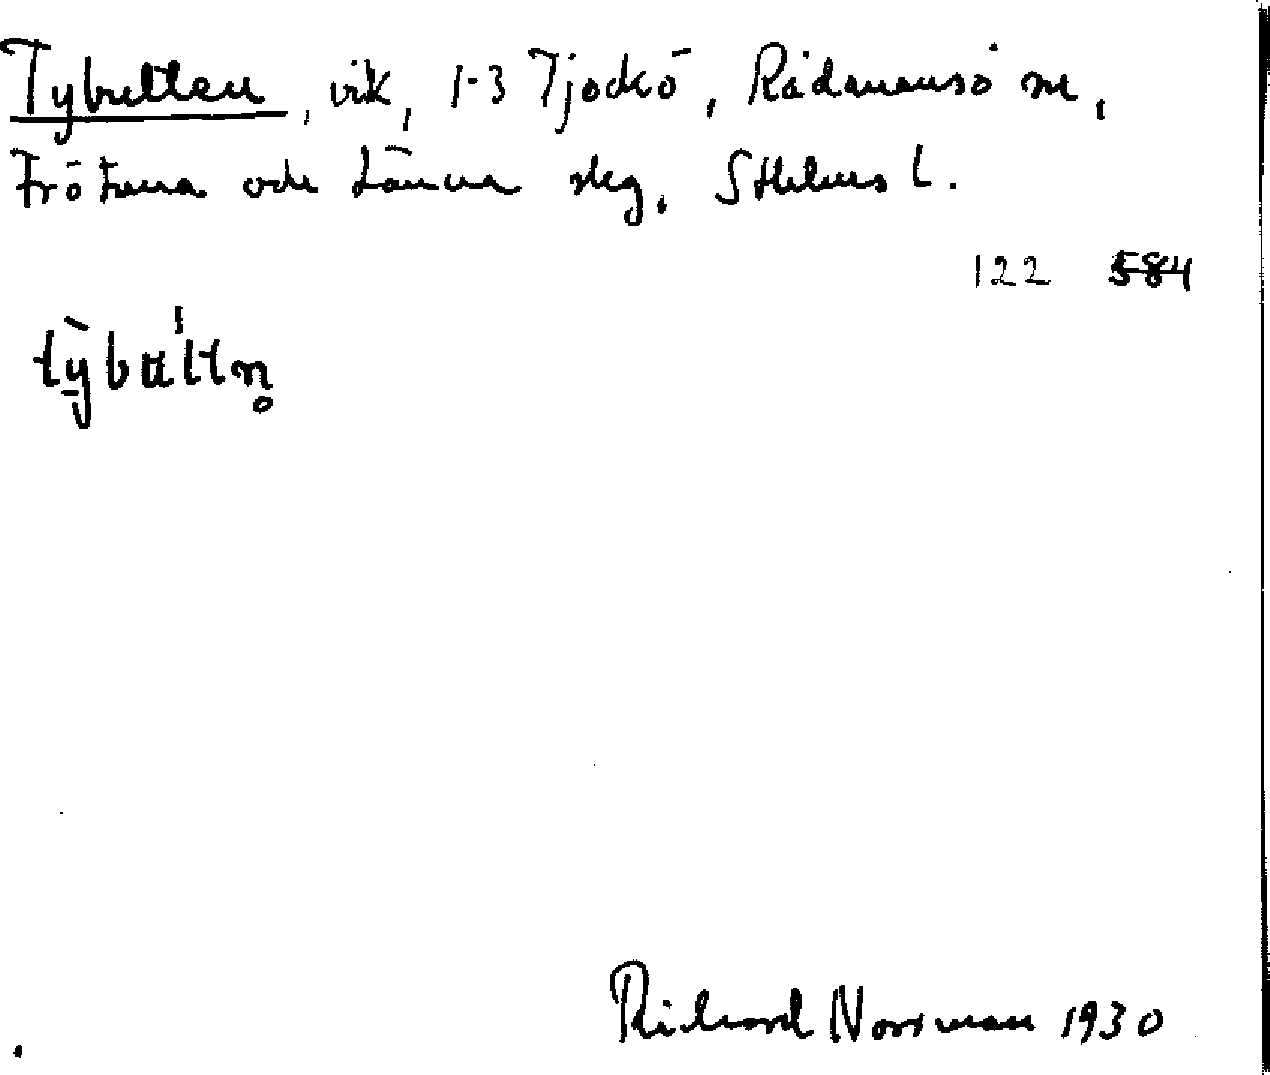 Tybulten, vik, 1-3 Tjockö, Rådmansö sn,
Frötuna och Länna skg, Sthlms l.
122 584
Richard Norrman 1930